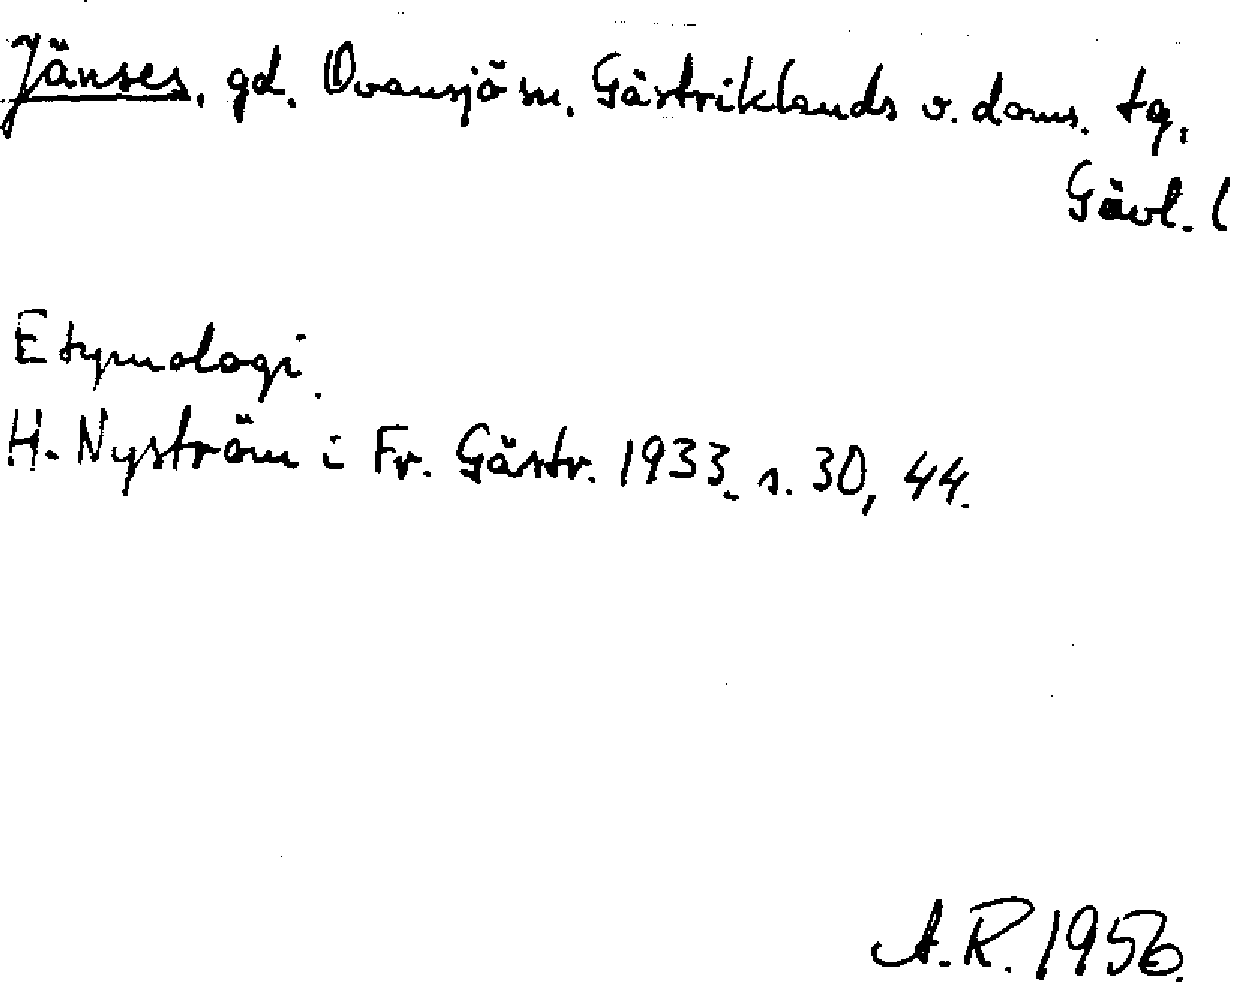 Jänses, gd. Ovansjö sn. Gästriklands v. doms. tg.
Gävl. l
Etymologi.
H. Nyström i Fr. Gästr. 1933. s. 30, 44.
A.R. 1956.